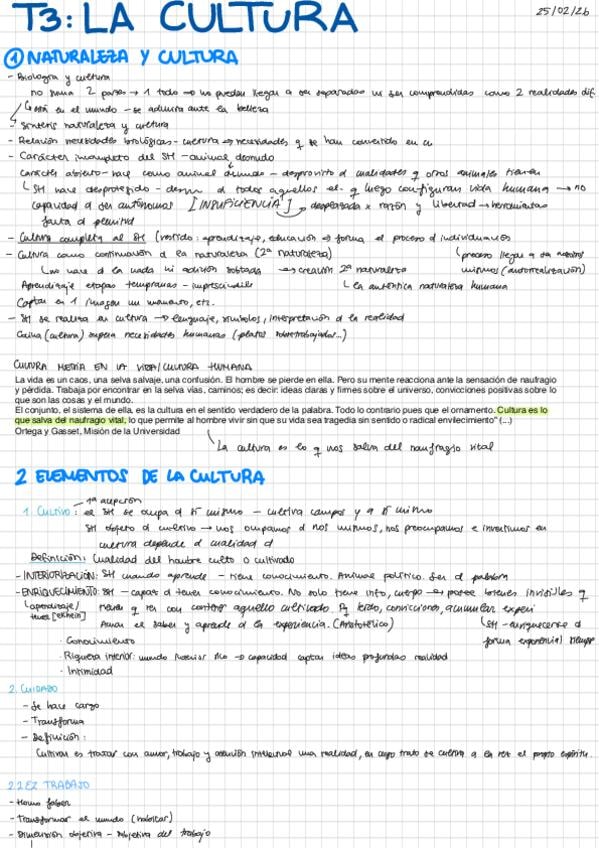 T3: LA CULTURA
25/02/26
① NATURALEZA Y CULTURA
- Biología y cultura
no suma 2 partes → 1 todo → no puedan llegar a ser separados ni ser comprendidas como 2 realidades dif.
↳ está en el mundo - se admira ante la belleza
- Síntesis naturaleza y cultura
- Relación necesidades biológicas - cultura → necesidades q se han convertido en
- Carácter incompleto del SH - animal desnudo
carácter abierto - nace como animal desnudo - desprovisto d cualidades q otros animales tienen
↳ SH nace desprotegido - d todos aquellos el. q luego configuran vida humana → no
capacidad d ser autónomos [INSUFICIENCIA] → desplazada x razón y libertad → herramientas
falta d plenitud
- Cultura completa al SH (vestido: aprendizaje, educación → forma el proceso d individuación
- Cultura como continuación d la naturaleza (2ª naturaleza) (proceso llegar a ser nosotros
↳ no nace d la nada ni adición → creación 2ª naturaleza mismos (autorrealización)
Aprendizaje etapas tempranas - imprescindible ↳ la auténtica naturaleza humana
Captar en 1 imagen un momento, etc.
- SH se realiza en cultura → lenguaje, símbolos, interpretación d la realidad
Cocina (cultura) supera necesidades humanas (platos sobretrabajados...)
CULTURA METIDA EN LA VIDA/CULTURA HUMANA
La vida es un caos, una selva salvaje, una confusión. El hombre se pierde en ella. Pero su mente reacciona ante la sensación de naufragio
y pérdida. Trabaja por encontrar en la selva vías, caminos; es decir: ideas claras y firmes sobre el universo, convicciones positivas sobre lo
que son las cosas y el mundo.
El conjunto, el sistema de ella, es la cultura en el sentido verdadero de la palabra. Todo lo contrario pues que el ornamento. Cultura es lo
que salva del naufragio vital, lo que permite al hombre vivir sin que su vida sea tragedia sin sentido o radical envilecimiento" (...)
Ortega y Gasset, Misión de la Universidad
↳ La cultura es lo q nos salva del naufragio vital
2 ELEMENTOS DE LA CULTURA
1ª acepción
1. CULTIVO: el SH se ocupa d sí mismo - cultiva campos y a sí mismo
SH objeto d cultivo → nos ocupamos d nos mismos, nos preocupamos e invertimos en
cultura depende d cualidad d
Definición: Cualidad del hombre culto o cultivado
- INTERIORIZACIÓN: SH cuando aprende - tiene conocimiento. Animal político. Ser d palabra
- ENRIQUECIMIENTO: SH - capaz d tener conocimiento. No solo tiene info, cuerpo → posee bienes invisibles q
(aprendizaje/ tener [ekhein] aquello cultivado. leído, convicciones, acumular experi
Amar el saber y aprende d la experiencia. (Aristotélico) (SH - enriquecerse d
forma exponencial siempre
· Conocimiento
· Riqueza interior: mundo interior rico → capacidad captar ideas profundas realidad
· Intimidad
2. CUIDADO
- Se hace cargo
- Transforma
- Definición:
Cultivar es tratar con amor, trabajo y atención intelectual una realidad, en cuyo trato se cultiva a la vez el propio espíritu.
2.2 EZ TRABAJO
- Homo faber
- Transformar el mundo (habitar)
- Dimensión objetiva - subjetiva del trabajo